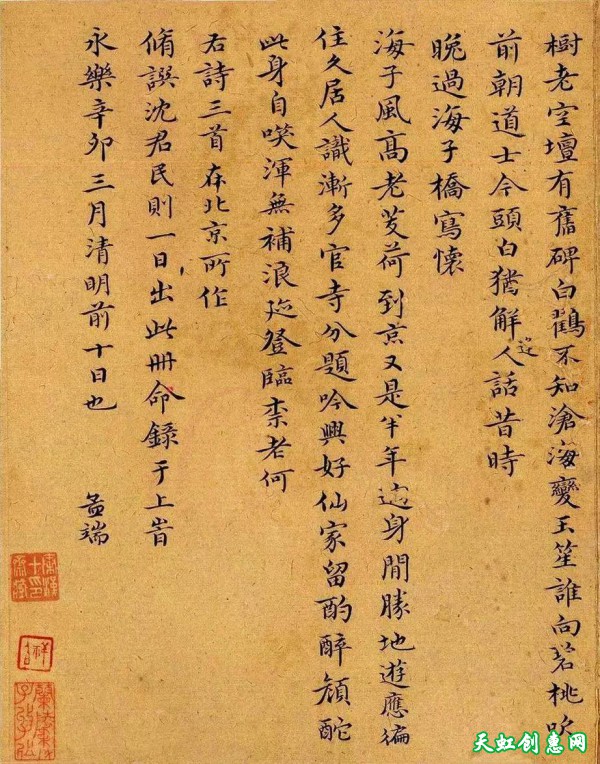 樹老空壇有舊碑白鸖不知滄海變玉笙誰向碧桃吹
前朝道士今頭白猶解逢人話昔時
晚過海子橋寫懷
海子風高老芰荷到京又是半年過身閒勝地遊應徧
住久居人識漸多官寺分題吟興好仙家留酌醉顏酡
此身自咲渾無補浪跡登臨柰老何
右詩三首在北京所作
脩譔沈君民則一日出此冊命錄于上旹
永樂辛卯三月清明前十日也
孟端
天虹创惠网